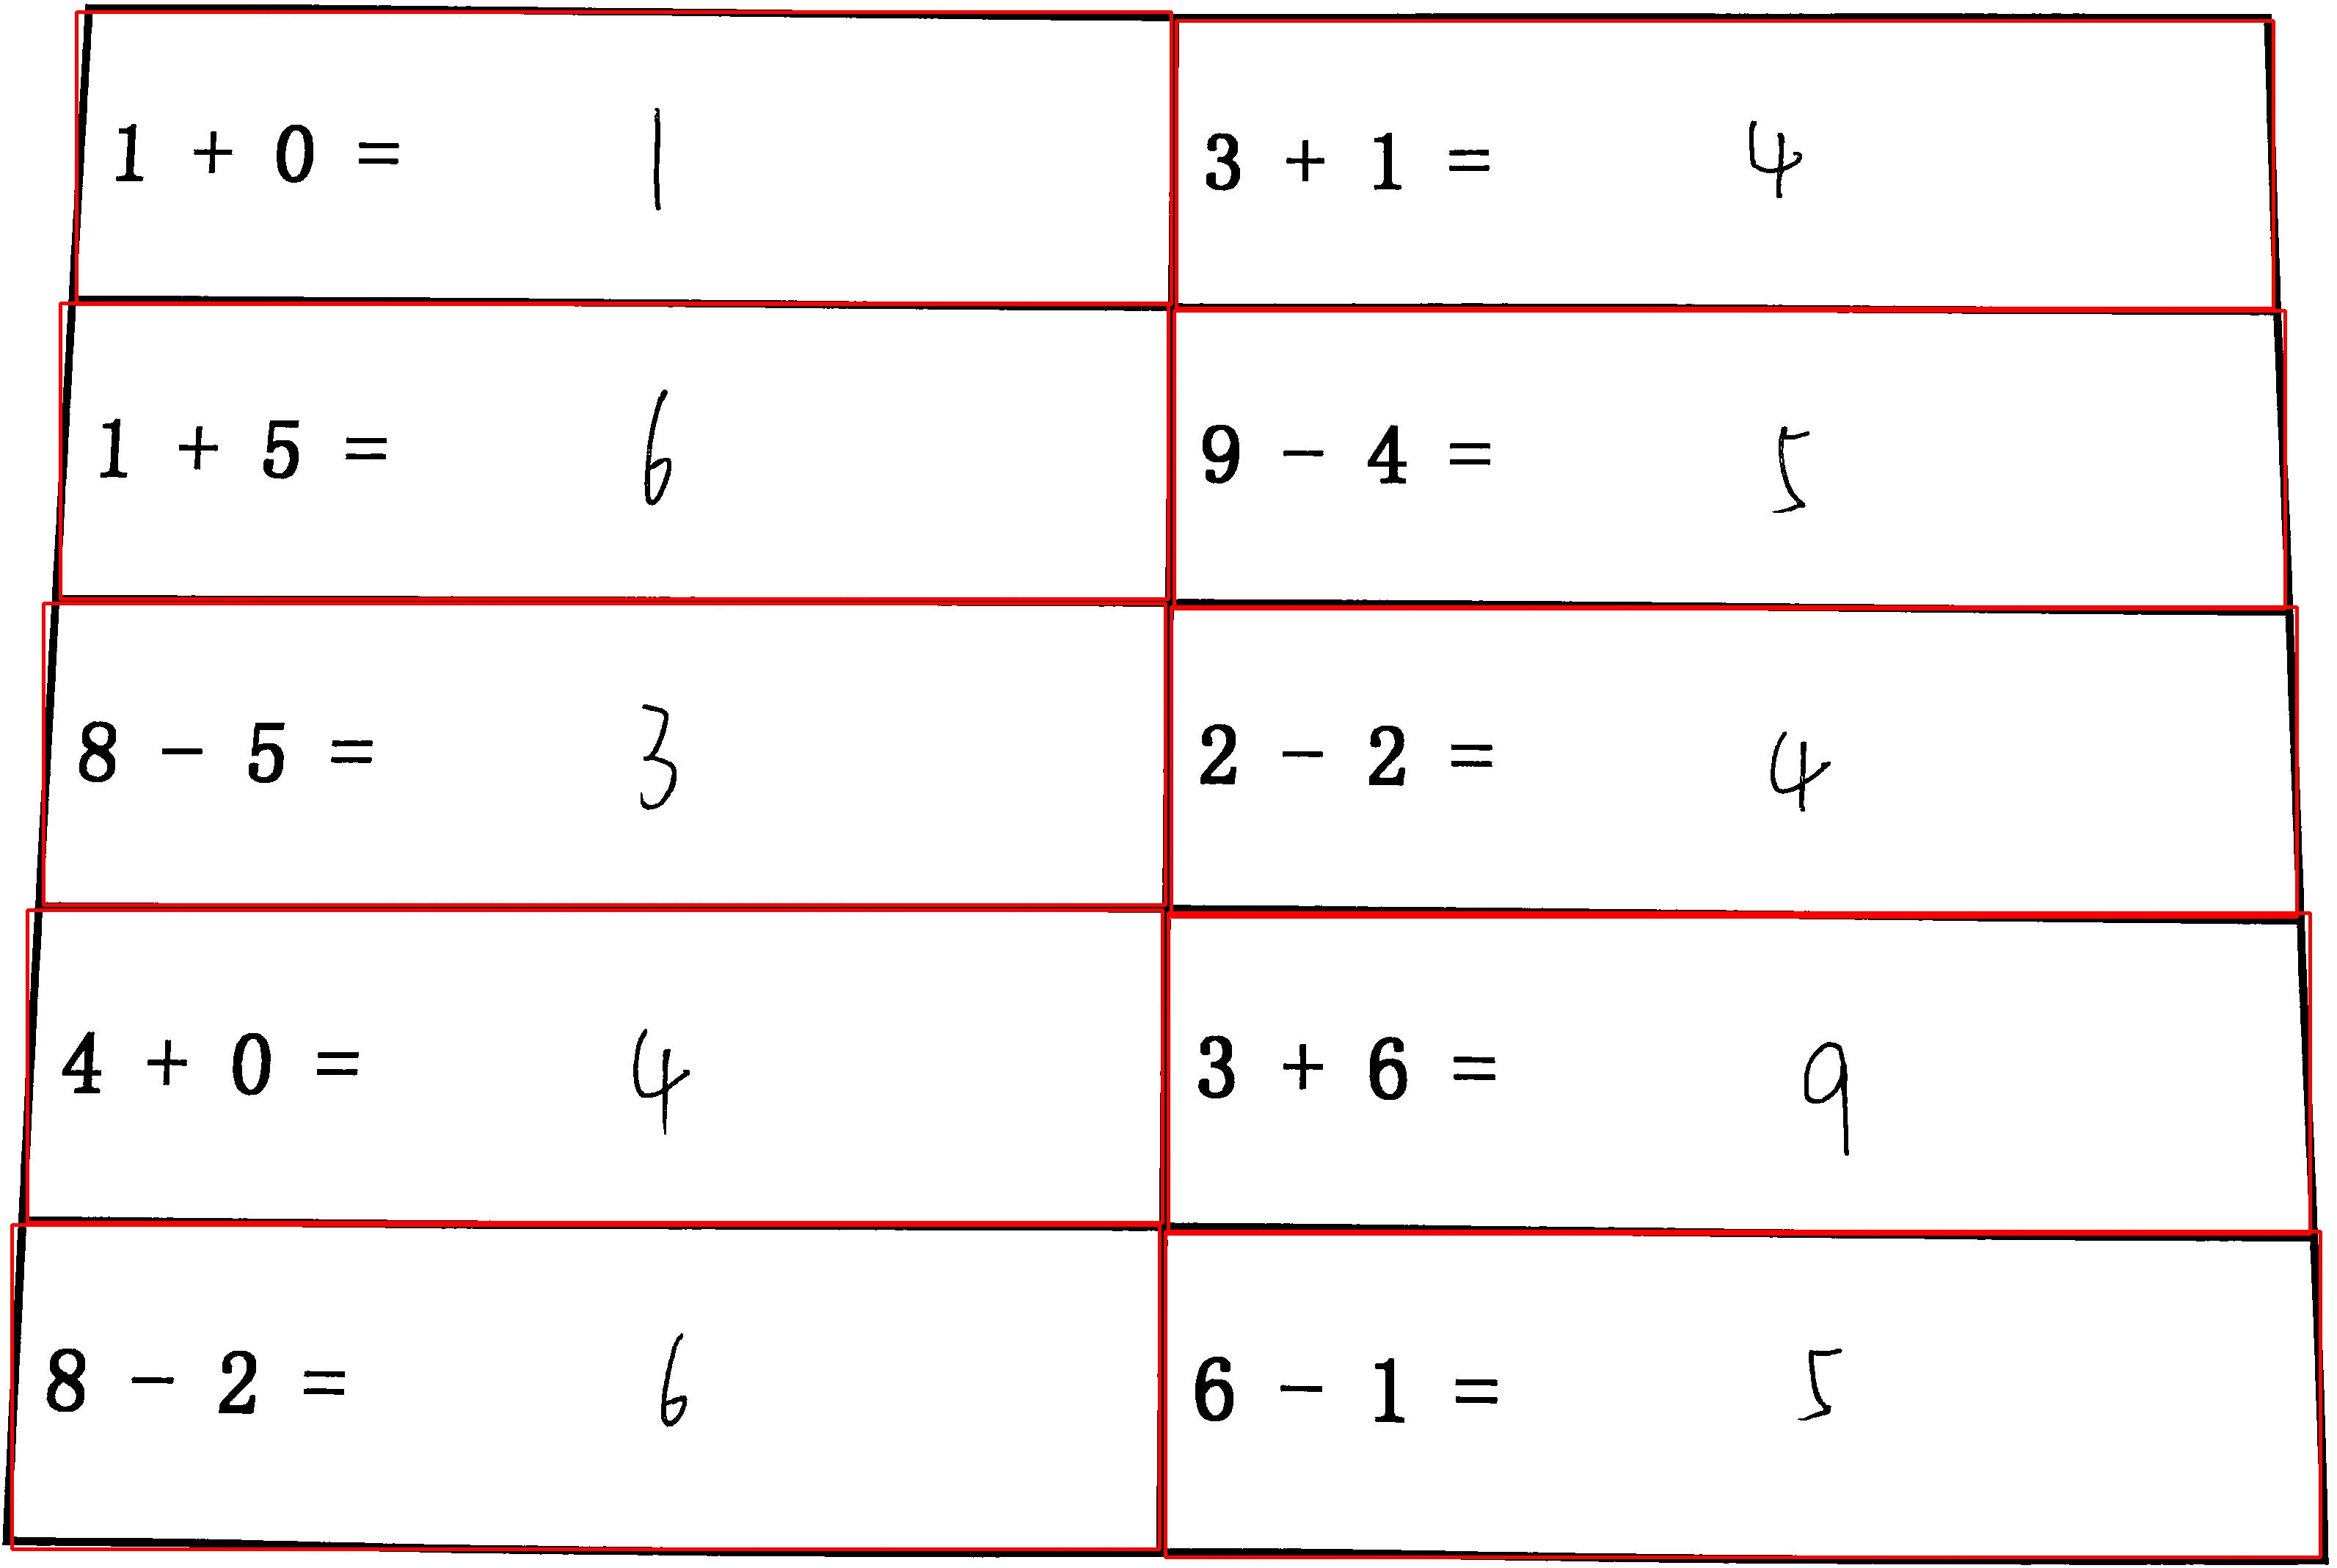 1 + 0 = 1 3 + 1 = 4
1 + 5 = 6 9 - 4 = 5
8 - 5 = 3 2 - 2 = 4
4 + 0 = 4 3 + 6 = 9
8 - 2 = 6 6 - 1 = 5